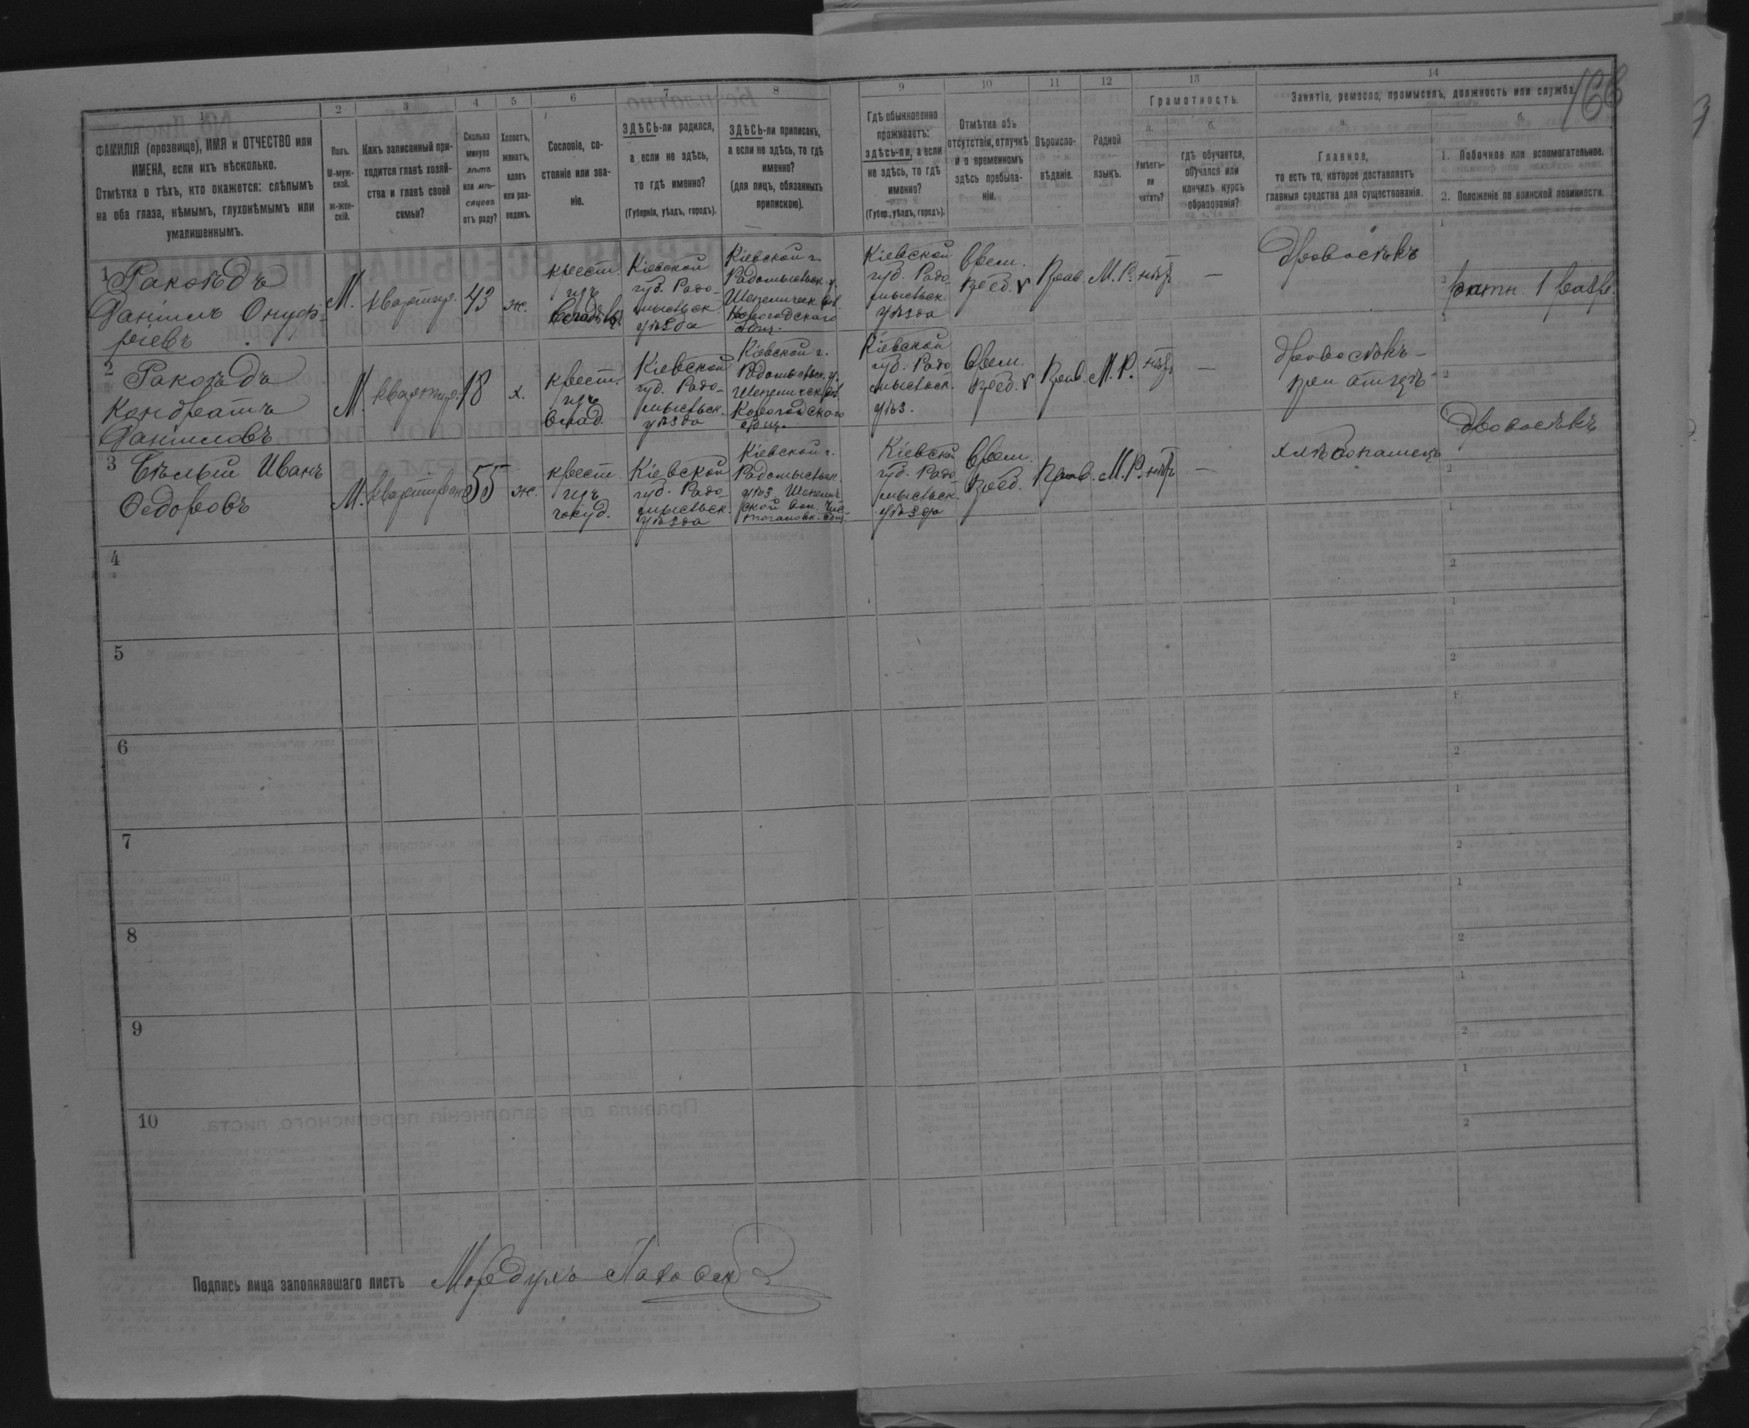 166
1 2 3 4 5 6 7 8 9 10 11 12 13 14
ФАМИЛІЯ (прозвище), ИМЯ и ОТЧЕСТВО или
ИМЕНА, если ихъ нѣсколько.
Отмѣтка о тѣхъ, кто окажется: слѣпымъ
на оба глаза, нѣмымъ, глухонѣмымъ или
умалишеннымъ.
Полъ.
М-муж-
ской.
Ж-жен-
скій.
Какъ записанный при-
ходится главѣ хозяй-
ства и главѣ своей
семьи?
Сколько
минуло
лѣтъ
или мѣ-
сяцевъ
отъ роду?
Холостъ,
женатъ,
вдовъ
или раз-
веденъ.
Сословіе, со-
стояніе или зва-
ніе.
ЗДѢСЬ-ли родился,
а если не здѣсь,
то гдѣ именно?
(Губернія, уѣздъ, городъ).
ЗДѢСЬ-ли приписанъ,
а если не здѣсь, то гдѣ
именно?
(для лицъ, обязанныхъ
припискою).
Гдѣ обыкновенно
проживаетъ:
здѣсь-ли, а если
не здѣсь, то гдѣ
именно?
(Губер., уѣздъ, городъ).
Отмѣтка объ
отсутствіи, отлучкѣ
и о временномъ
здѣсь пребыва-
ніи.
Вѣроиспо-
вѣданіе.
Родной
языкъ.
Грамотность.
а.
Умѣетъ-
ли
читать?
б.
гдѣ обучается,
обучался или
кончилъ курсъ
образованія?
Занятіе, ремесло, промыселъ, должность или служба.
а.
Главное,
то есть то, которое доставляетъ
главныя средства для существованія.
б.
1. Побочное или вспомогательное.
2. Положеніе по воинской повинности.
1
Ракоѣдъ
Даніилъ Онуф-
ріевъ
М.
квартир.
43
ж.
крест.
изъ
Кіевской
губ. Радо-
мысльск.
уѣзда
Кіевской г.
Радомысльск. у.
Шепеличск. вол.
Корогодского
общ.
Кіевской
губ. Радо
мысльск.
уѣзда
Врем.
преб.
Прав.
М. Р.
нѣтъ
—
Дровосѣкъ
1
2
ратн. 1 разр.
2
Ракоѣдъ
Кондратъ
Даніиловъ
М.
квартир.
18
х.
крест.
изъ
Кіевской
губ. Радо-
мысльск.
уѣзда
Кіевской г.
Радомысльск. у.
Шепеличск. вол.
Корогодского
общ.
Кіевской
губ. Радо
мысльск.
уѣз.
Врем.
преб.
Прав.
М. Р.
нѣтъ
—
дровосѣкъ-
при отцѣ
1
2
3
Бѣлый Иванъ
Федоровъ
М.
квартиран.
55
ж.
крест.
изъ
госуд.
Кіевской
губ. Радо
мысльск.
уѣзда
Кіевской г.
Радомысльск.
уѣз. Шепелич
ской вол.
Кіевской
губ. Радо
мысльск.
уѣзда
Врем.
преб.
Прав.
М. Р.
нѣтъ
—
хлѣбопашецъ
1
Дровосѣкъ
2
4
1
2
5
1
2
6
1
2
7
1
2
8
1
2
9
1
2
10
1
2
Подпись лица заполнявшаго листъ